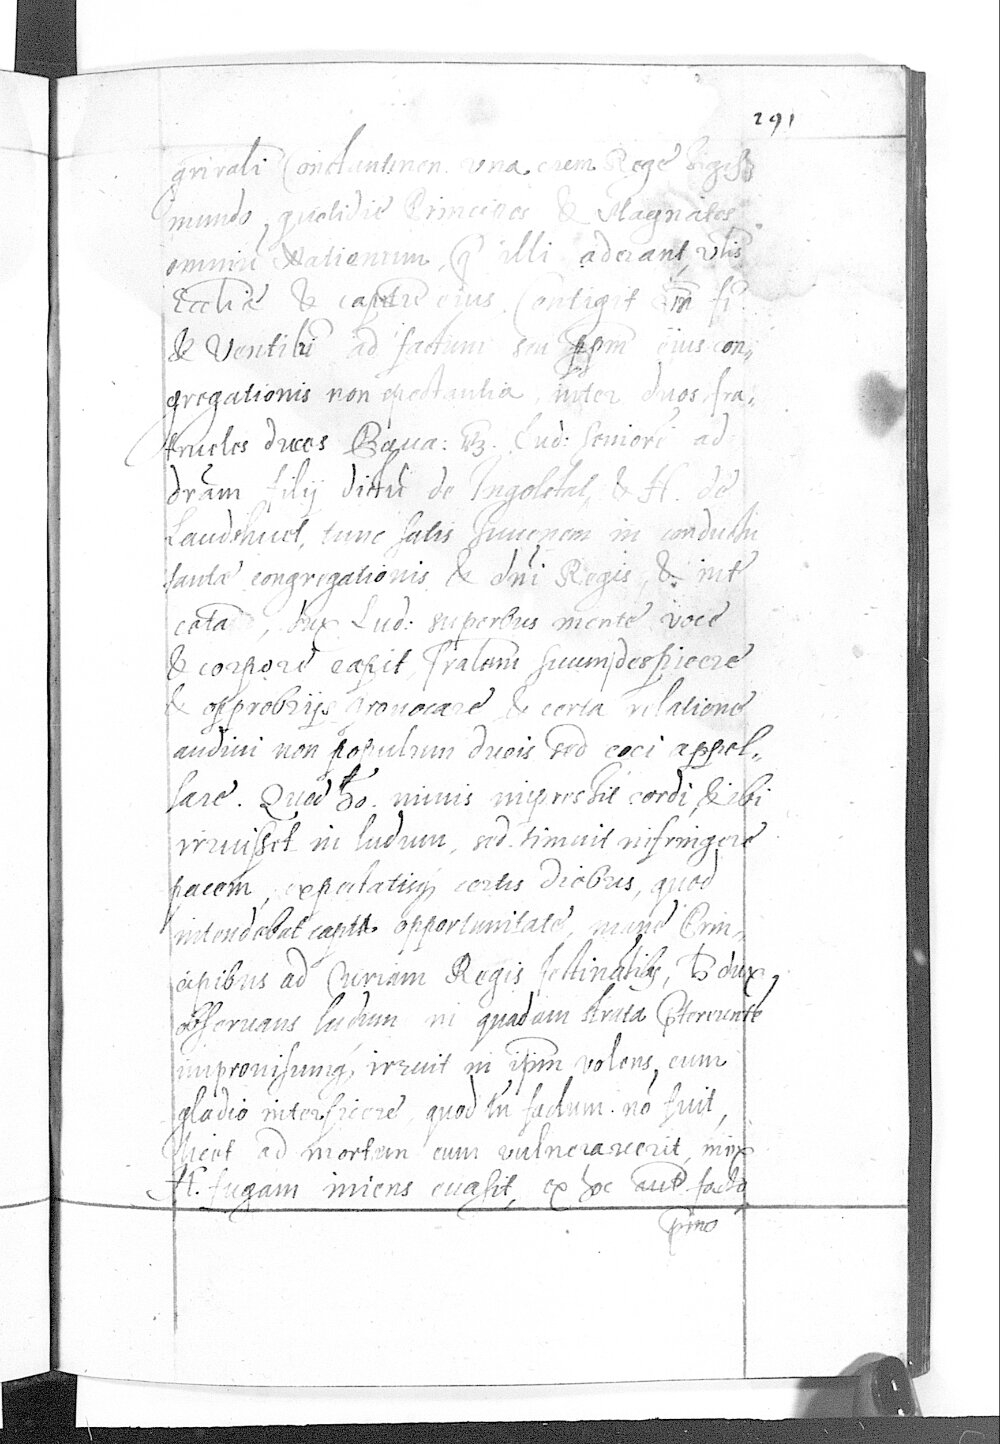 291
grirali Constantinen. una cum Rege Sigis
mundo, quotidie Principes & Magnates
omniũ Nationum, q̃ illi aderant, vtis
Eccliẽ & capitẽ eius. Contigit &
& Ventibi ad factum seu ppm eius con„
gregationis non spectantia, inter duos fra„
trueles duces Baua: vz. Lud: seniorẽ ad
drãm filij dictũ de Ingolstat, & H. de
Laudshuet, tunc satis Iuuenem in conductu
sanctæ congregationis & dñi Regis, & inte
cæta, dux Lud: superbus mente voce
& corpore cæpit, fratem suum despicere
& opprobrijs prouocare & certa relatione
audiui non populum ducis sed coci appel„
lare. Quod ho. nimis impressit cordi, & ibi
irruisset in ludum, sed timuit infringere
pacem, expectatisq̃ certis diebus, quod
intendebat capta opportunitate, mane Prin„
cipibus ad Curiam Regis festinatibs, H dux
obseruans ludum in quadam strata Ptereunte
improuisumq̃, irruit in ipm̃ volens eum
gladio interficere, quod tñ factum nõ fuit,
licet ad mortem eum vulnerauerit, mox
H. fugam iniens euasit, ex hoc autẽ facto
primo